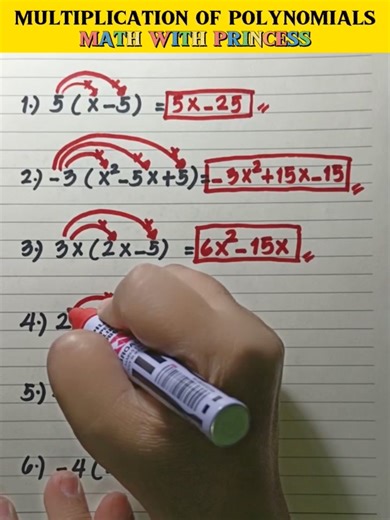 MULTIPLICATION OF POLYNOMIALS
MATH WITH PRINCESS
1.) 5 (x - 5) = 5x - 25
2.) -3 (x² - 5x + 5) = -3x² + 15x - 15
3.) 3x (2x - 5) = 6x² - 15x
4.) 2
5.)
6.) -4 (